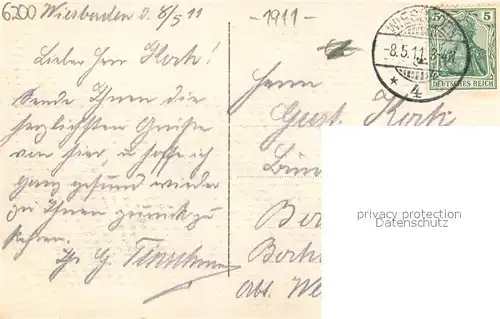 6200 Wiesbaden d. 8/5 11
-1911-
Lieber Herr Koch!
Sende Ihnen die
herzlichsten Grüße
von hier, u hoffe ich
ganz gesund wieder
zu Ihnen zurück zu
kehren.
Ihr G.
WIESBADEN
-8.5.11.
* 4
5 5
DEUTSCHES REICH
Herrn
Gust. Koch
privacy protection
Datenschutz
Abs. We